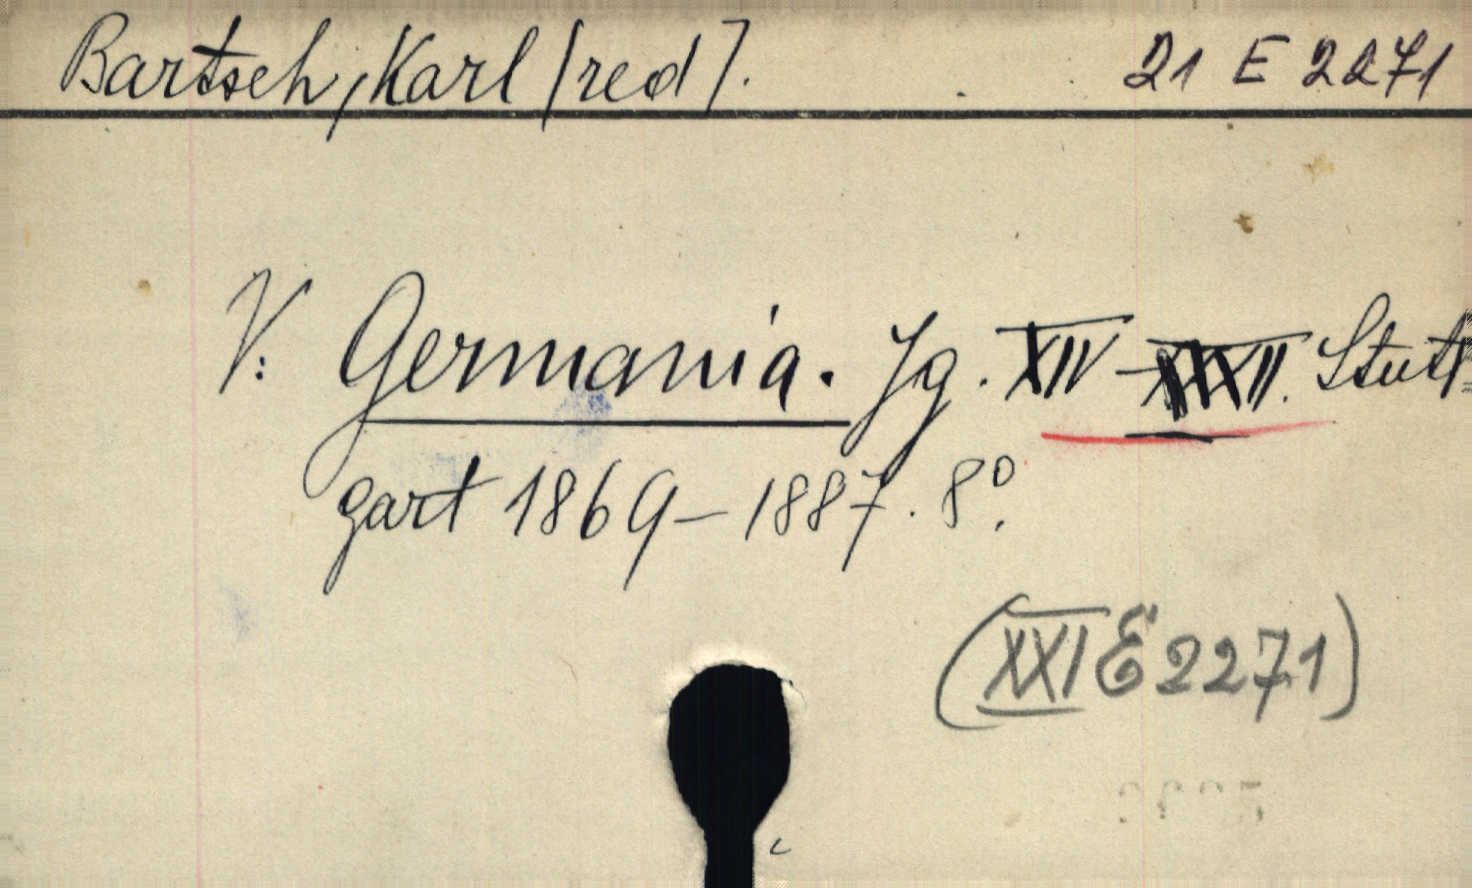 Bartsch, Karl [red]. 21 E 2271
V: Germania. Jg. XIV - XXXII. Stutt=
gart 1869-1887. 8°.
(XXI E 2271)